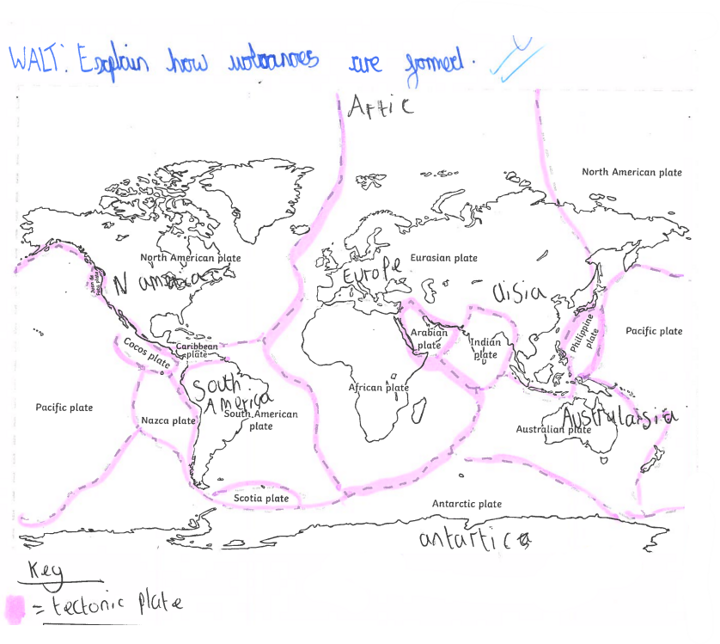 WALT: Explain how volcanoes are formed.
Artic
North American plate
North American plate
Eurasian plate
N america
Europe
aisia
Arabian
plate
Indian
plate
Philippine
plate
Pacific plate
Caribbean
plate
Cocos plate
African plate
South
America
South American
plate
Pacific plate
Nazca plate
Australaisia
Australian plate
Scotia plate
Antarctic plate
antartica
Key
= tectonic plate